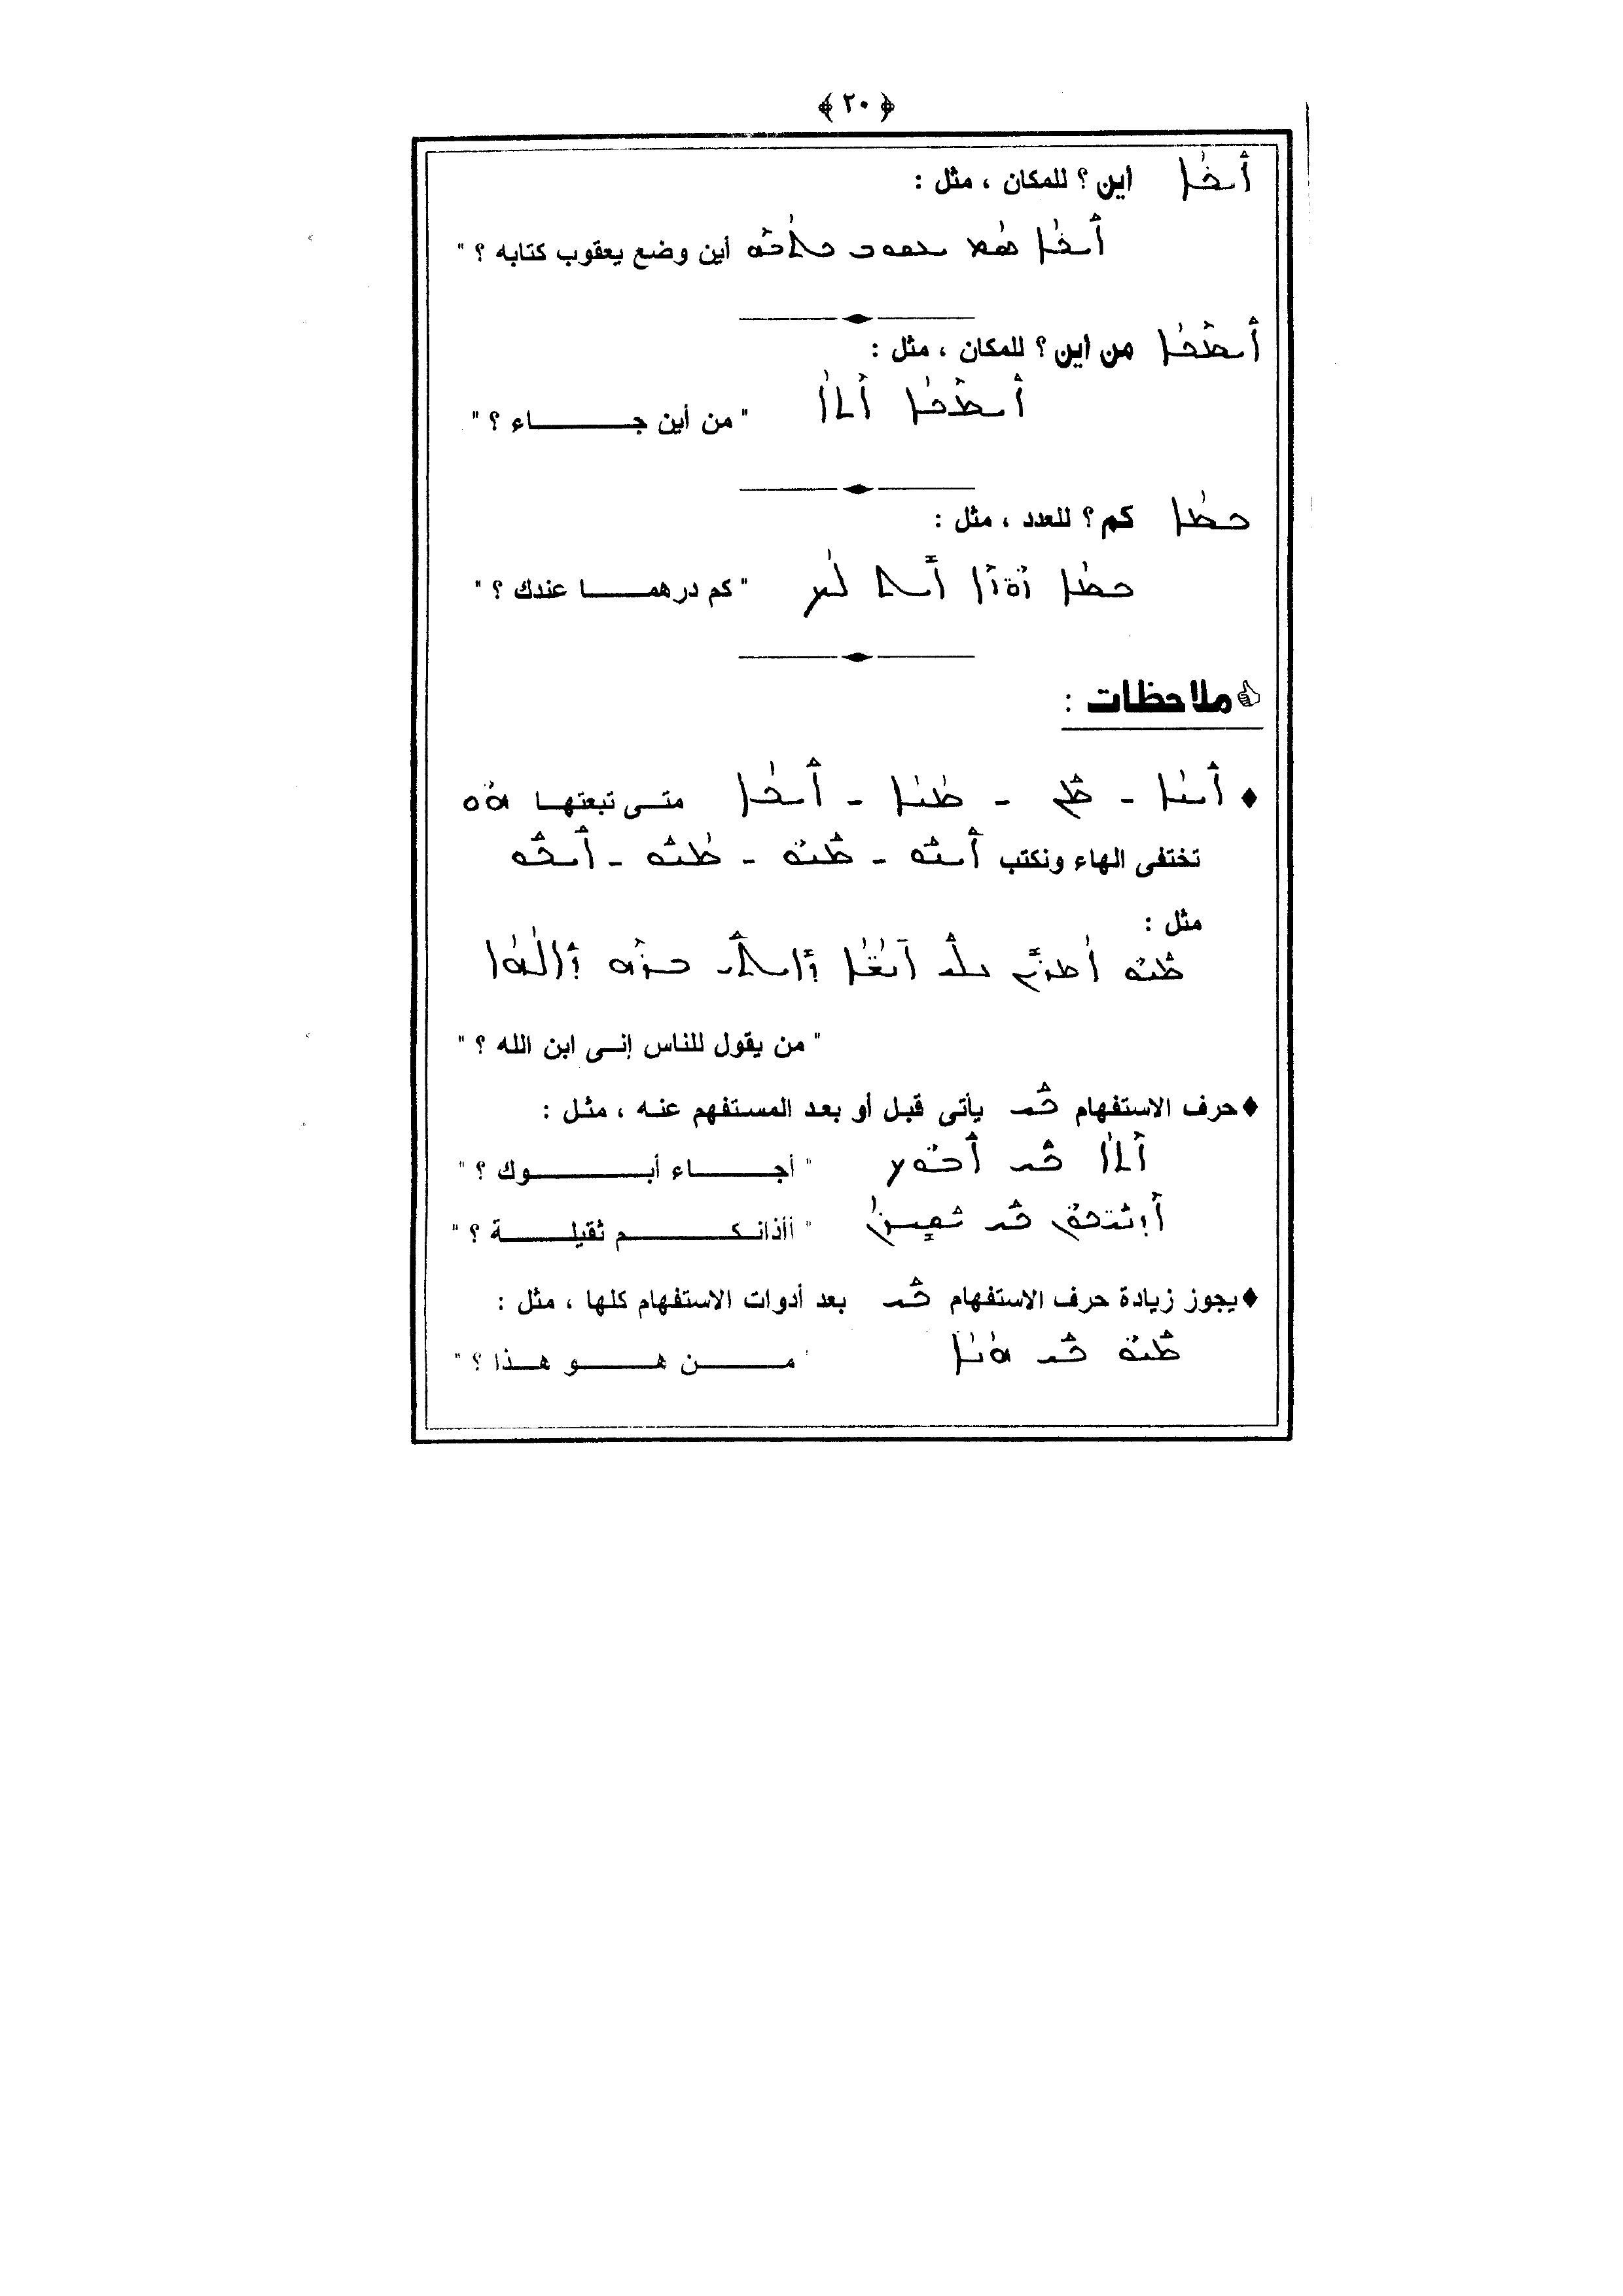 ﴿ ٢٠ ﴾
ܐܝܟܐ أين ؟ للمكان ، مثل :
ܐܝܟܐ ܣܡ ܝܥܩܘܒ ܟܬܒܗ أين وضع يعقوب كتابه ؟ "
ܐܝܡܟܐ من أين ؟ للمكان ، مثل :
ܐܝܡܟܐ ܐܬܐ " من أين جـــــاء ؟ "
ܟܡܐ كم ؟ للعدد ، مثل :
ܟܡܐ ܙܘܙܐ ܐܝܬ ܠܟ " كم درهمـــــا عندك ؟ "
ملاحظات :
♦ ܐܝܢܐ - ܡܢ - ܡܢܐ - ܐܝܟܐ متى تبعتهـا ܗܘ
تختفى الهاء ونكتب ܐܝܢܘ - ܡܢܘ - ܡܢܘ - ܐܝܟܘ
مثل :
ܡܢܘ ܐܡܪܝܢ ܐܢܫܐ ܕܐܝܬܝ ܒܪܗ ܕܐܠܗܐ
" من يقول للناس إنـى ابن الله ؟ "
♦ حرف الاستفهام ܟܝ يأتى قبل أو بعد المستفهم عنه ، مثل :
ܐܬܐ ܟܝ ܐܒܘܟ " أجـــــاء أبـــــــوك ؟ "
ܟܝ ܝܩܝܪܢ " أأذانـكـــــــــم ثقيلـــــة ؟ "
♦ يجوز زيادة حرف الاستفهام ܟܝ بعد أدوات الاستفهام كلها ، مثل :
ܡܢܘ ܟܝ ܗܢܐ مـــــن هـــــو هـــذا ؟ "